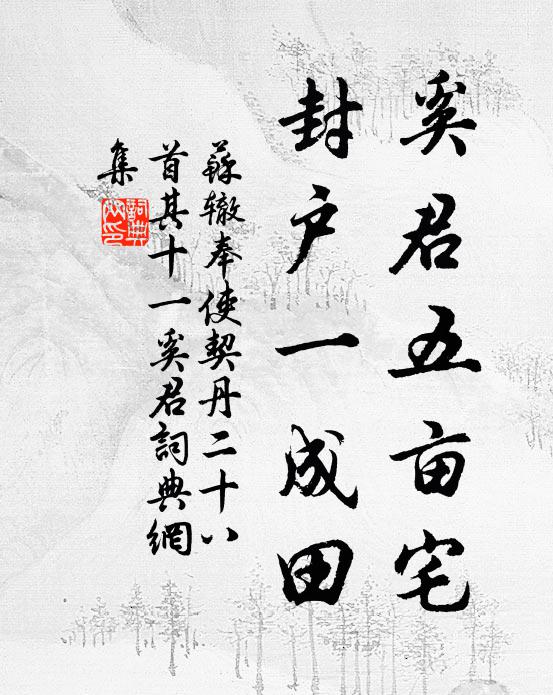 奚君五亩宅
封户一成田
蘇辙奉使契丹二十八
首其十一奚君詞典網
集